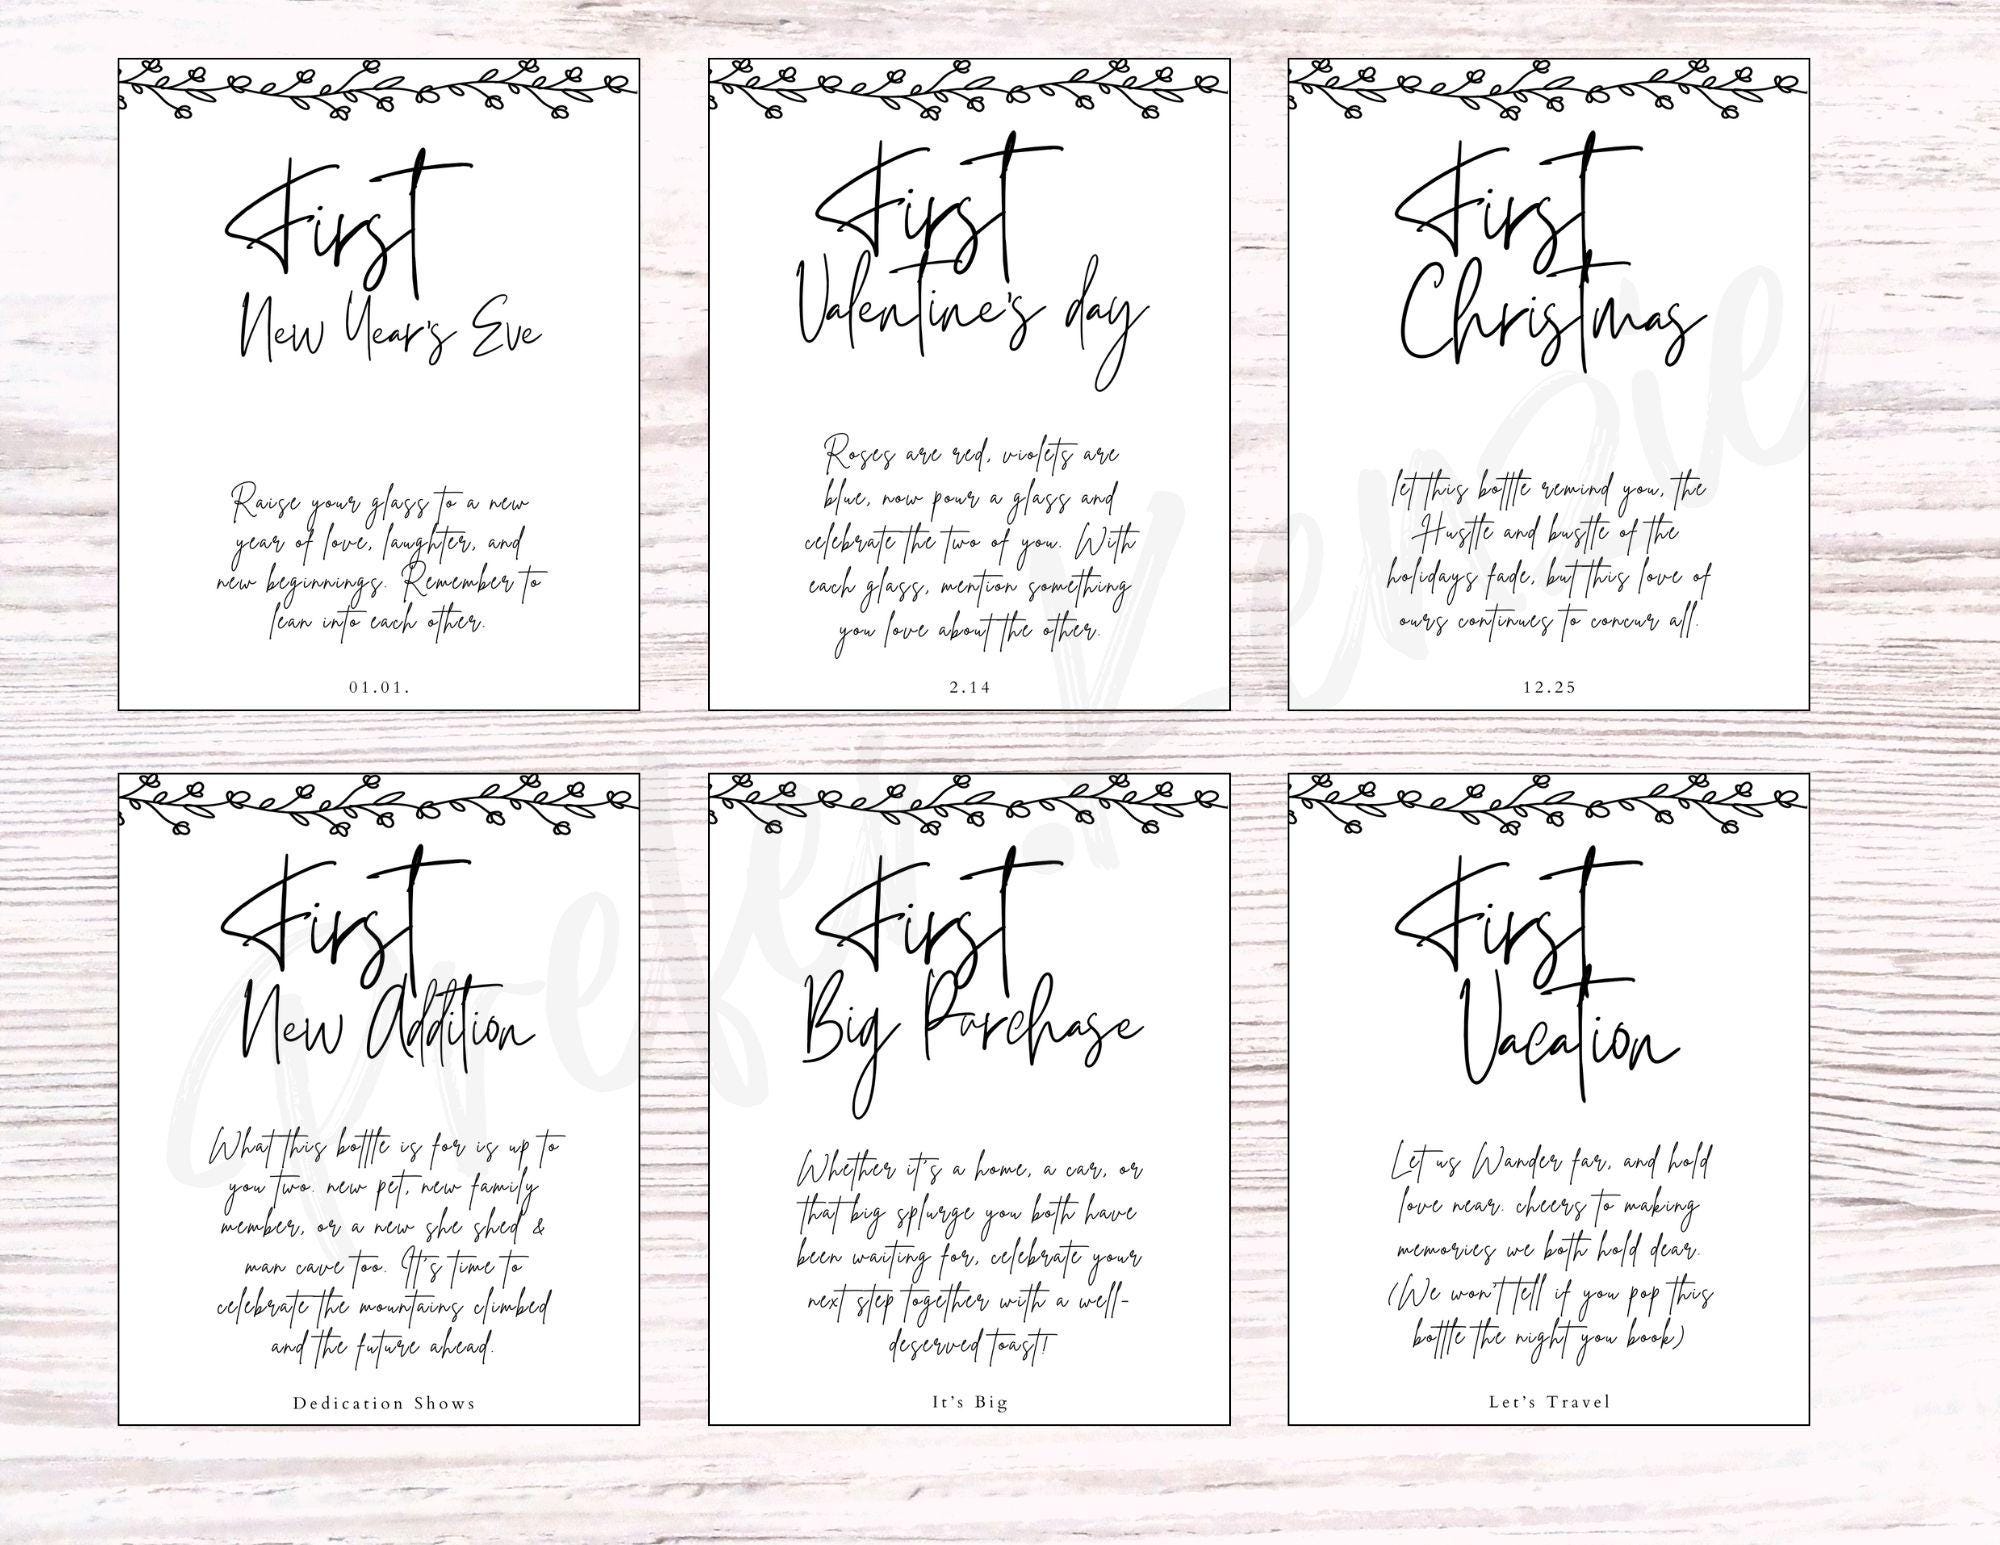 First
New Year's Eve
Raise your glass to a new
year of love, laughter, and
new beginnings. Remember to
lean into each other.
01.01.
First
Valentine's day
Roses are red, violets are
blue, now pour a glass and
celebrate the two of you. With
each glass, mention something
you love about the other.
2.14
First
Christmas
let this bottle remind you, the
Hustle and bustle of the
holidays fade, but this love of
ours continues to concur all.
12.25
First
New Addition
What this bottle is for is up to
you two. new pet, new family
member, or a new she shed &
man cave too. It's time to
celebrate the mountains climbed
and the future ahead.
Dedication Shows
First
Big Purchase
Whether it's a home, a car, or
that big splurge you both have
been waiting for, celebrate your
next step together with a well-
deserved toast!
It's Big
First
Vacation
Let us Wander far, and hold
love near. cheers to making
memories we both hold dear.
(We won't tell if you pop this
bottle the night you book)
Let's Travel